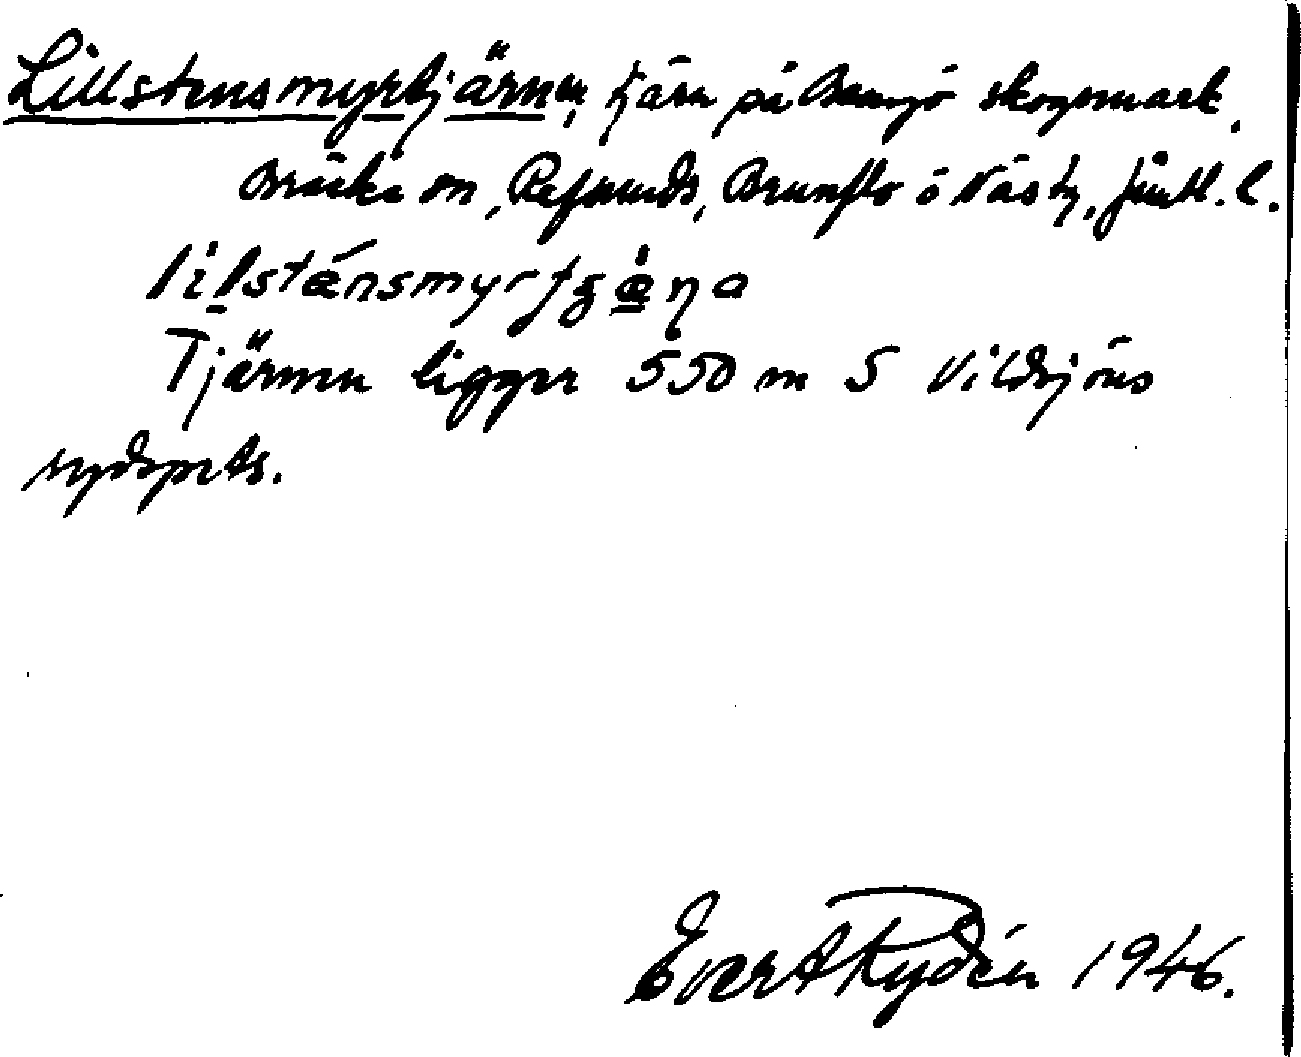 Lillstensmyrtjärnen, tjärn på Bensjö skogsmark,
Bräcke sn, Refsunds, Brunflo o Näs tg, Jämtl. l.
Tjärnen ligger 550 m S Vildsjöns
sydspets.
Evert Rydén 1946.